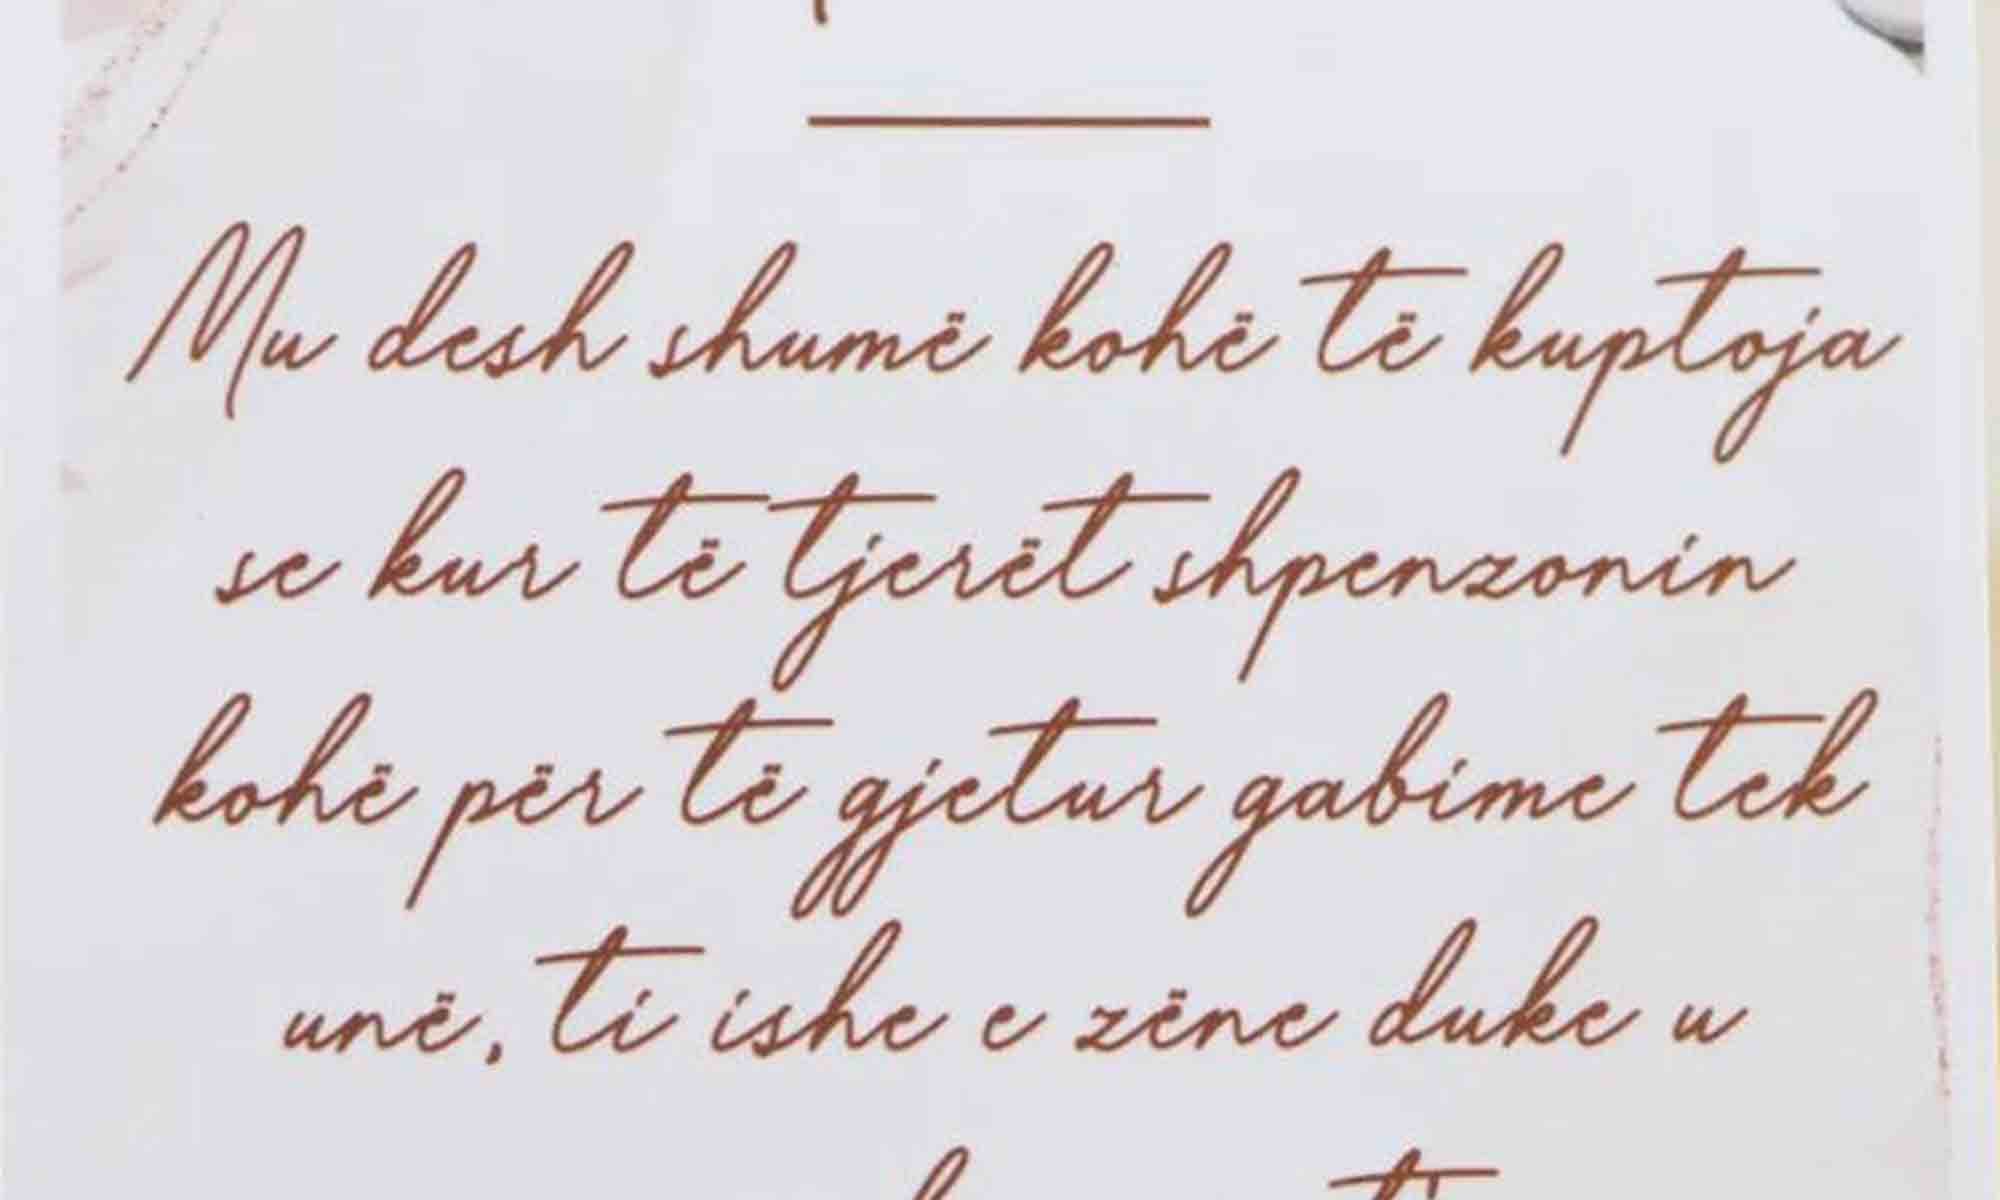 Mu desh shumë kohë të kuptoja
se kur të tjerët shpenzonin
kohë për të gjetur gabime tek
unë, ti ishe e zëne duke u